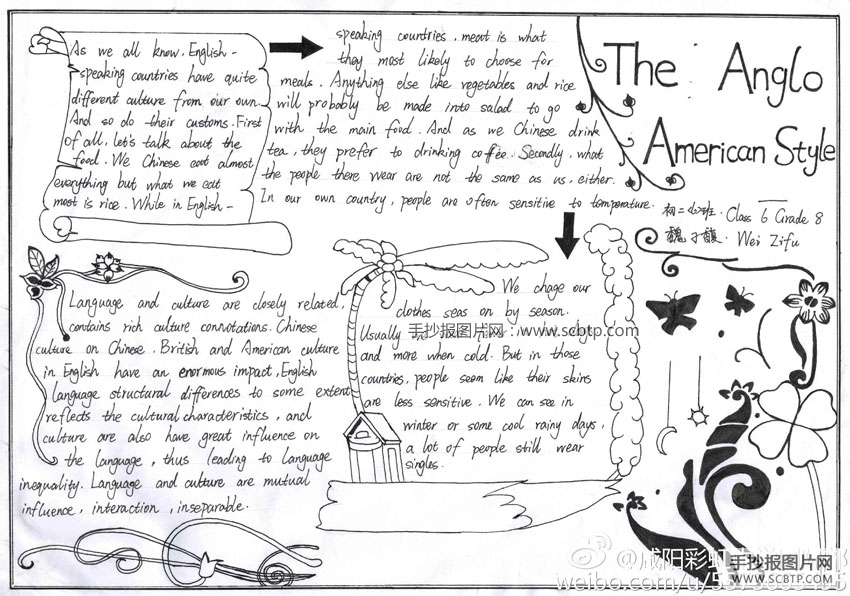 The Anglo
American Style
初二(6)班. Class 6 Grade 8
魏子馥. Wei Zifu
As we all know. English-
speaking countries have quite
different culture from our own.
And so do their customs. First
of all, let's talk about the
food. We Chinese eat almost
everything but what we eat
most is rice. While in English-
speaking countries, meat is what
they most likely to choose for
meals. Anything else like vegetables and rice
will probably be made into salad to go
with the main food. And as we Chinese drink
tea, they prefer to drinking coffee. Secondly, what
the people there wear are not the same as us, either.
In our own country, people are often sensitive to tomporature.
We chage our
clothes seas on by season.
Usually
and more when cold. But in those
countries, people seem like their skins
are less sensitive. We can see in
winter or some cool rainy days,
a lot of people still wear
singles.
Language and culture are closely related,
contains rich culture connotations. Chinese
culture on Chinese. British and American culture
in English have an enormous impact, English
language structural differences to some extent
reflects the cultural characteristics, and
culture are also have great influence on
the language, thus leading to language
inequality. Language and culture are mutual
influence, interaction, inseparable.
手抄报图片网：www.scbtp.com
@咸阳彩虹
weibo.com/u/
手抄报图片网
WWW.SCBTP.COM